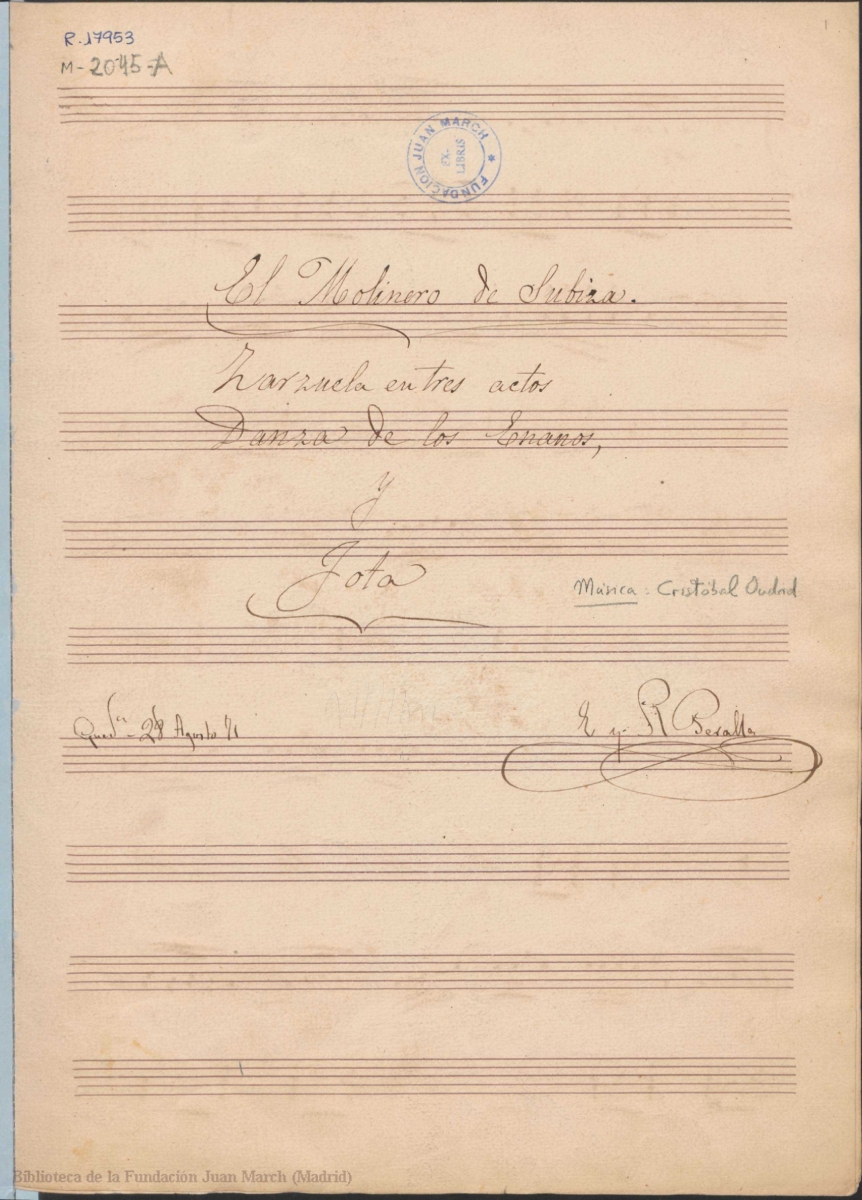 R. 17953
M-2045-A
1
FUNDACIÓN JUAN MARCH *
EX-
LIBRIS
El Molinero de Subiza.
Zarzuela en tres actos
Danza de los Enanos,
y
Jota
Música: Cristóbal Oudrid
28 Agosto 71
E y R Peralta
Biblioteca de la Fundación Juan March (Madrid)